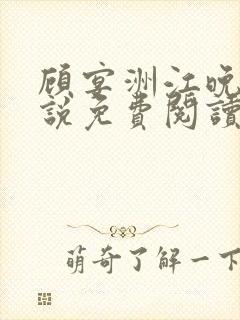 顾宴洲江晚
說免費閱讀
萌奇了解一下